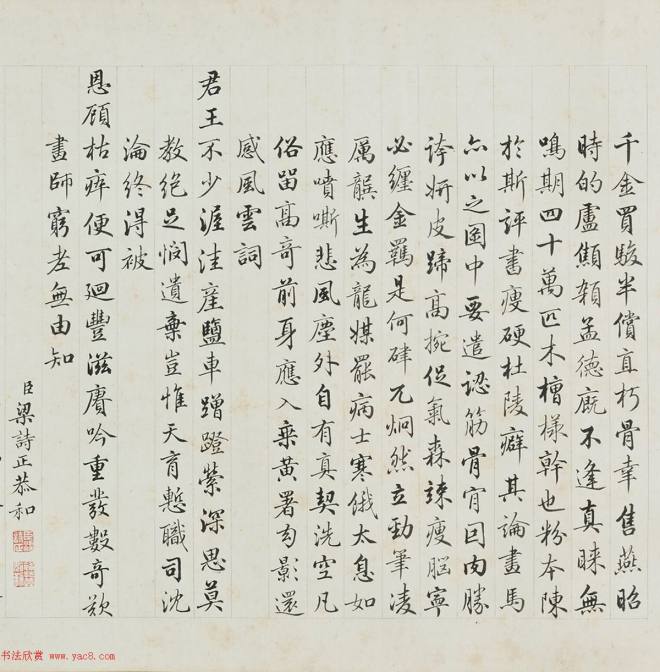 千金買駿半償直朽骨幸售燕昭
時的盧顱額孟德廐不逢真睞無
鳴期四十萬匹木檀樣幹也粉本陳
於斯評書瘦硬杜陵癖其論畫馬
亦以之圖中要遣認筋骨肎囙肉勝
誇妍皮蹄高捥促氣森竦瘦腦寧
必纏金羈是何肆兀炯然立勁筆凌
厲誤生為龍媒罷病士寒餓太息如
應噴嘶悲風塵外自有真契洗空凡
俗留高奇前身應入乘黃署勾影還
感風雲詞
君王不少渥洼產鹽車蹭蹬縈深思莫
教絕足憫遺棄豈惟天育慙職司沈
淪終得被
恩顧枯瘁便可迴豐滋賡吟重發數奇歎
畫師窮老無由知
臣梁詩正恭和
书法欣赏 www.yac8.com